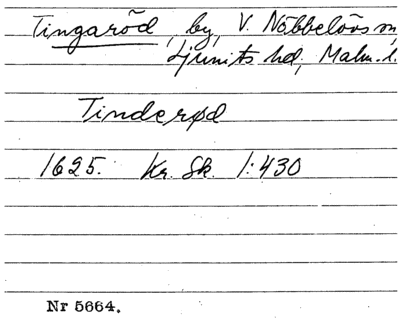 Tingaröd, by, V. Nöbbelövs sn,
Ljunits hd, Malm. l.
Tinderød
1625. Kr. Sk. 1:430
Nr 5664.